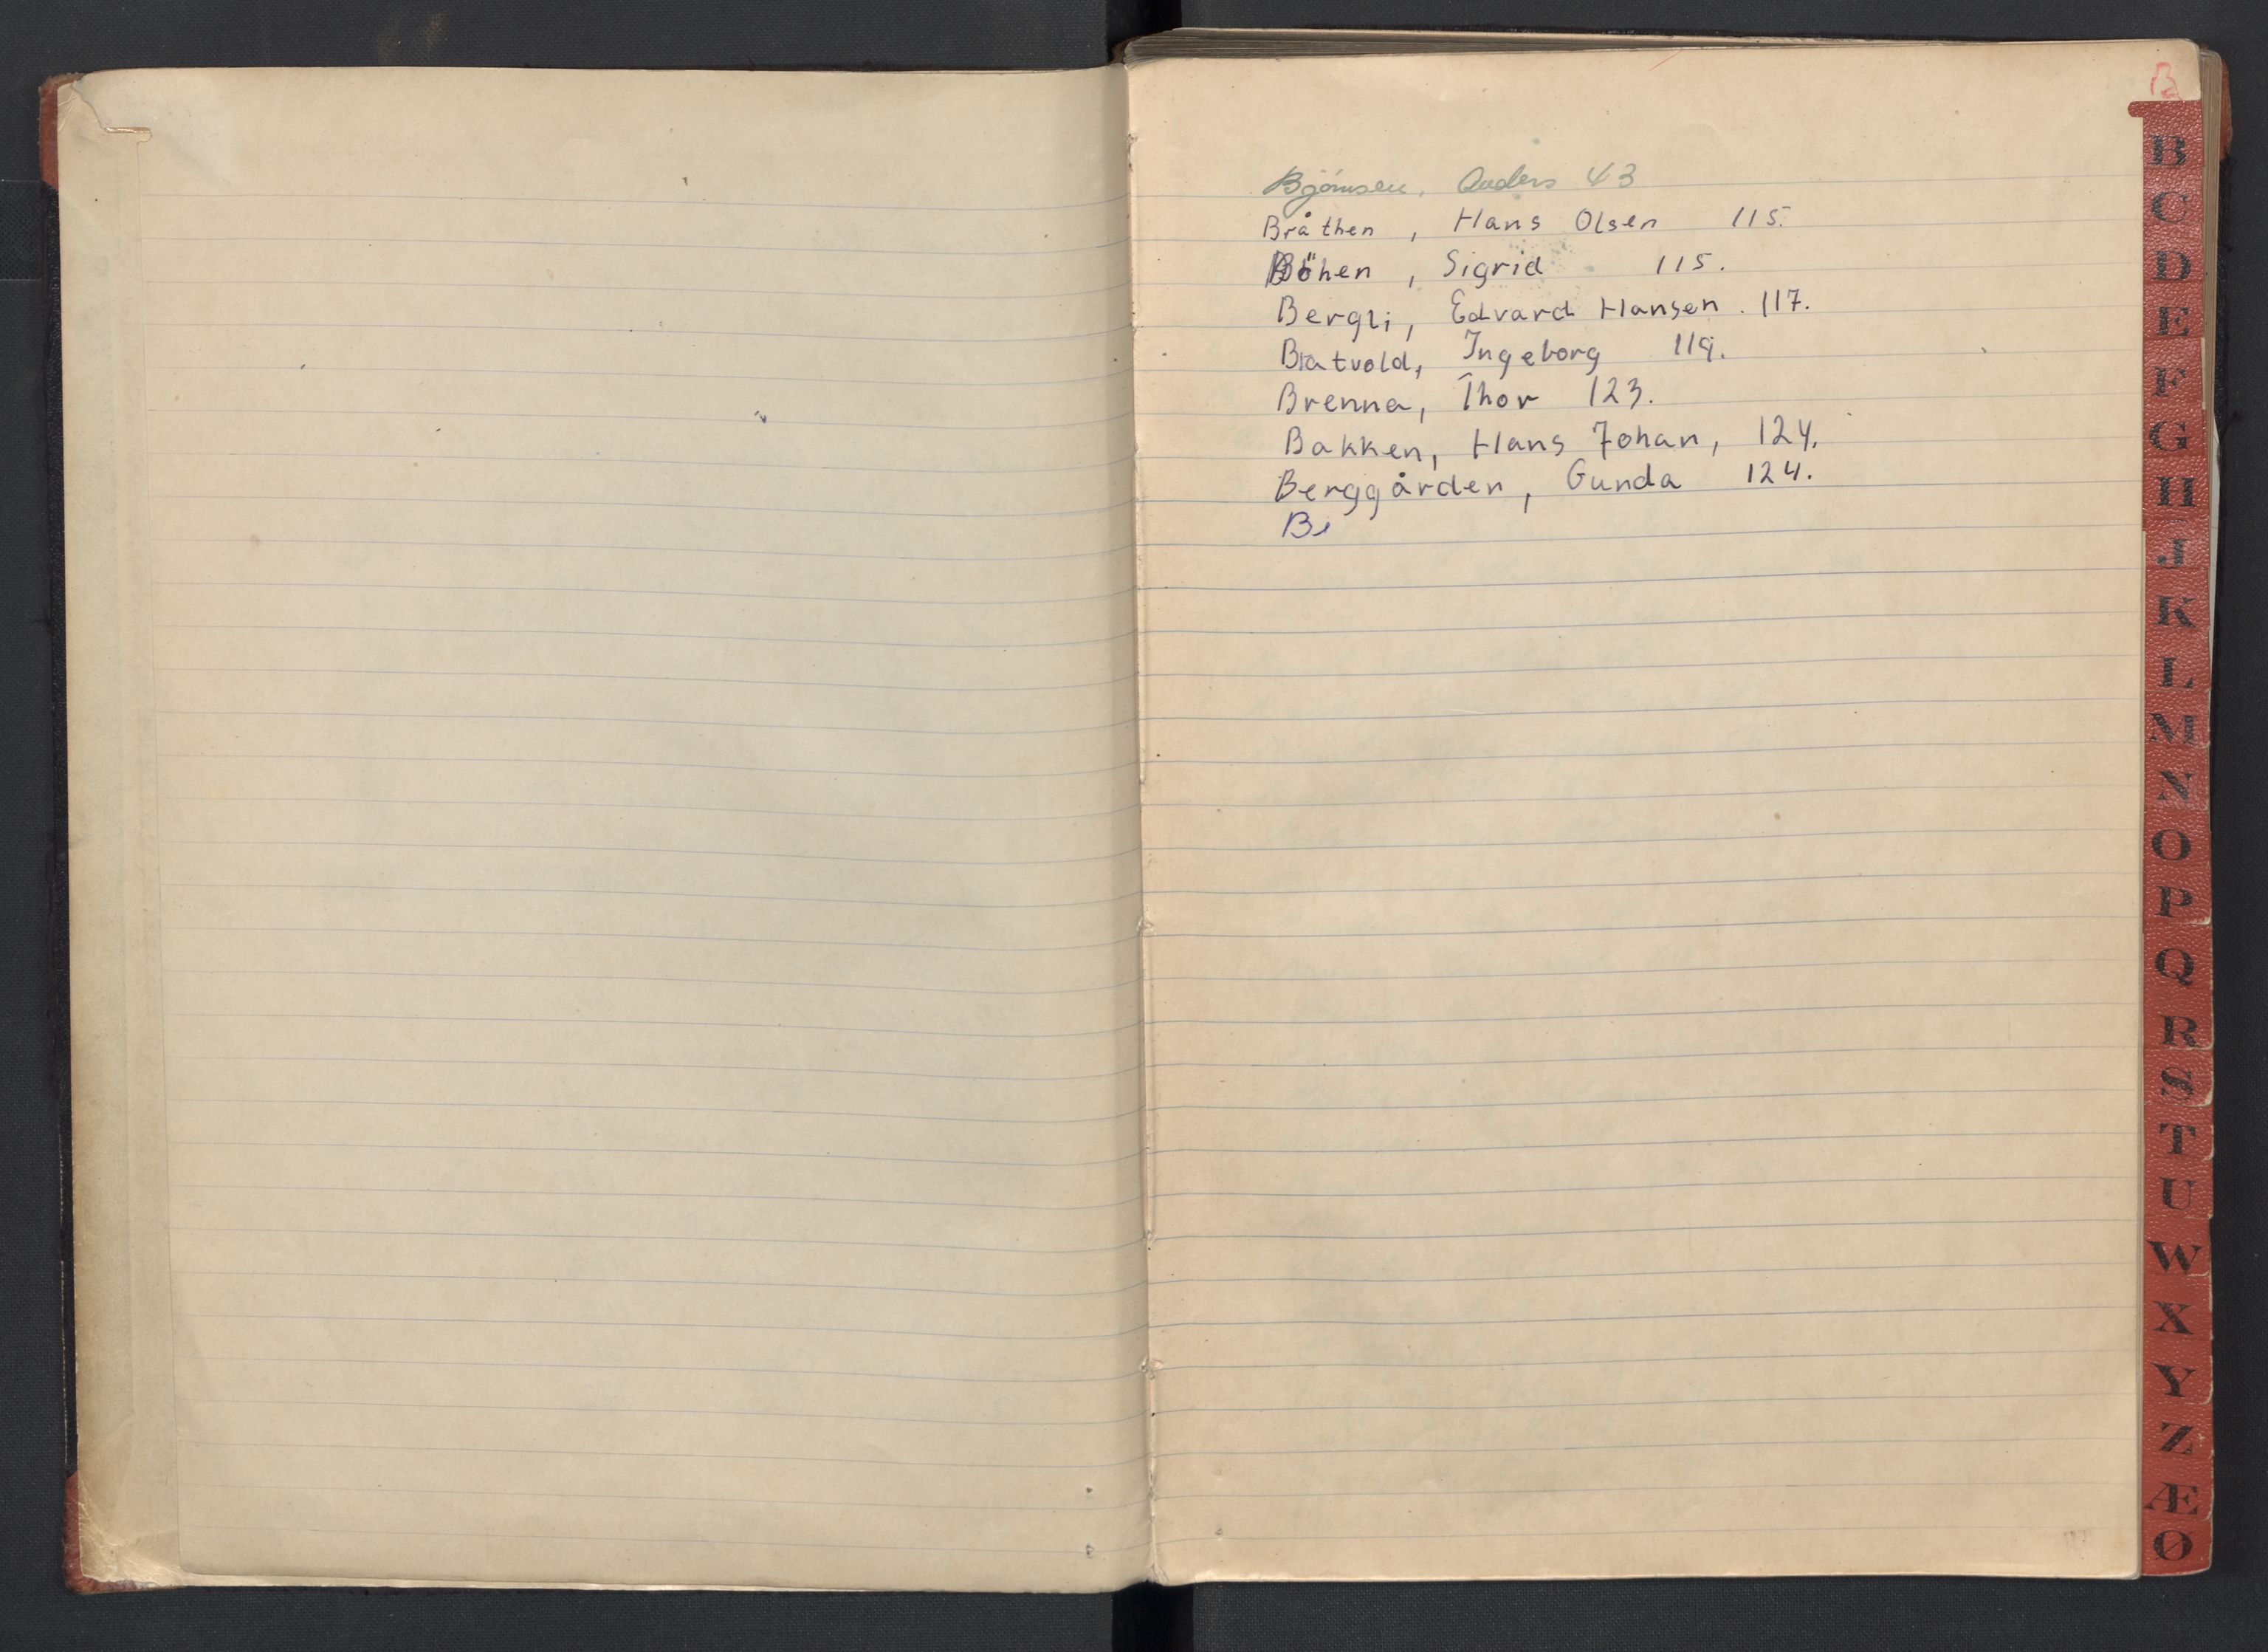 B
Björnsen, Anders 43
Bråthen, Hans Olsen 115.
Böhen, Sigrid 115.
Bergli, Edvard Hansen. 117.
Bratvold, Ingeborg 119.
Brenna, Thor 123.
Bakken, Hans Johan, 124.
Berggården, Gunda 124.
Be
B
C
D
E
F
G
H
J
K
L
M
N
O
P
Q
R
S
T
U
W
X
Y
Z
Æ
Ø